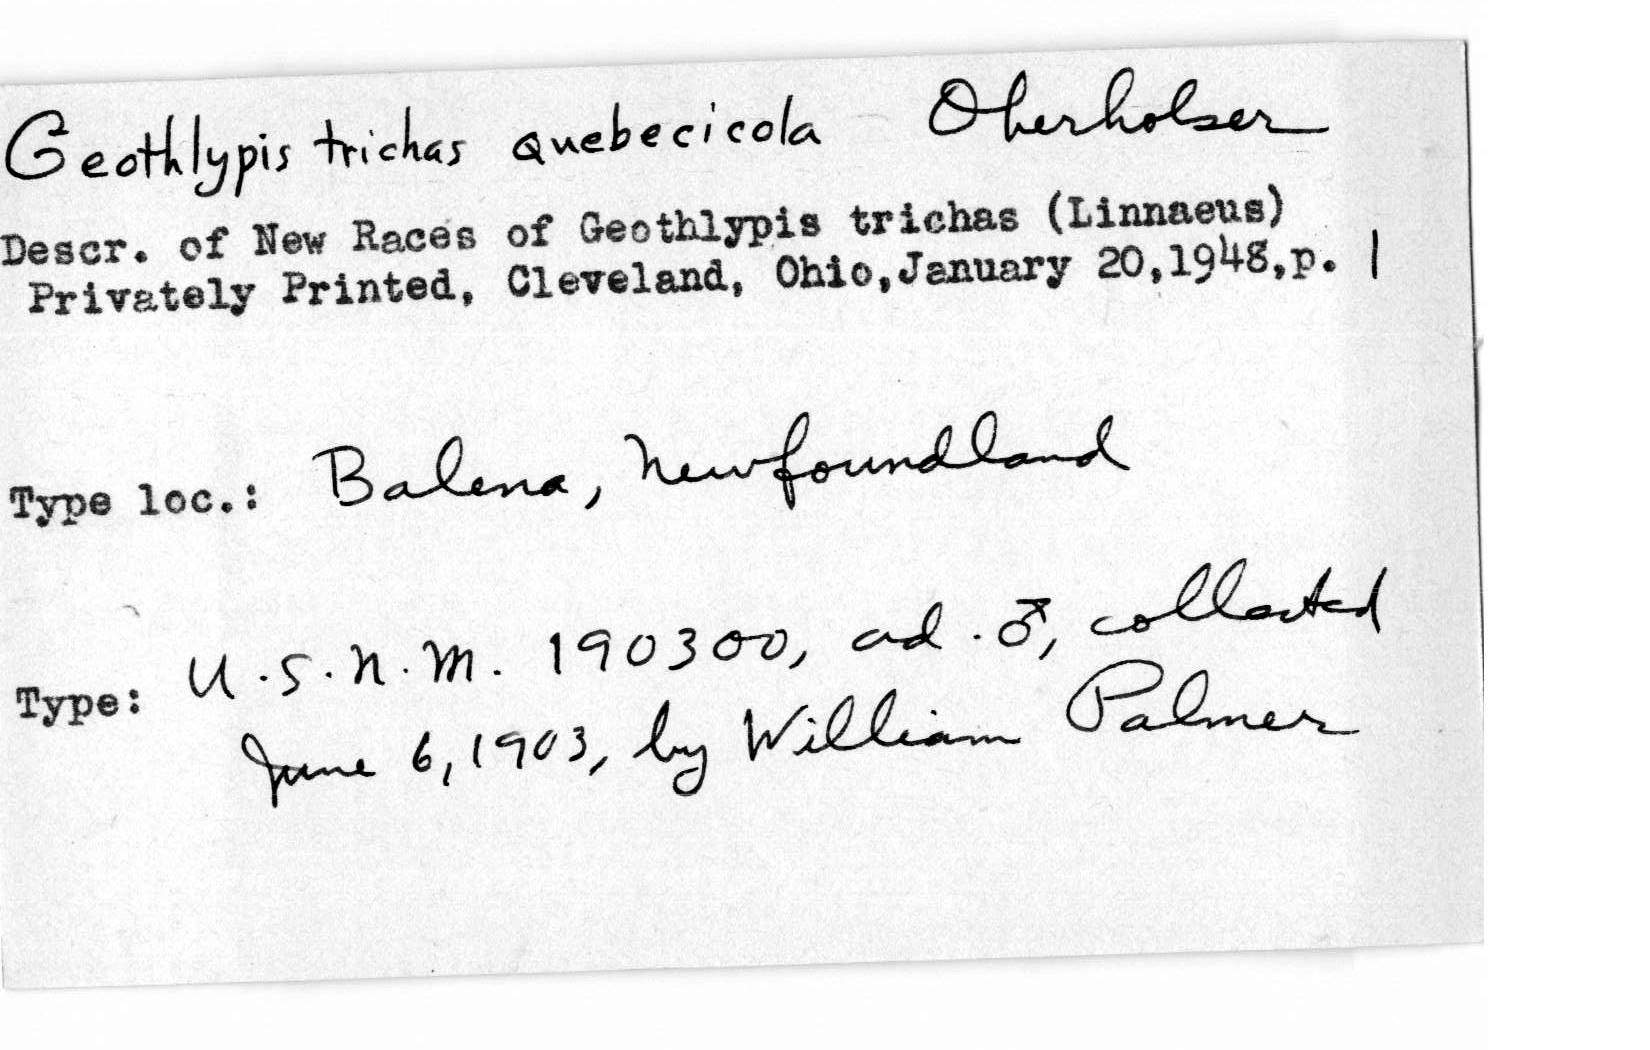 Geothlypis trichas quebecicola Oberholser
Descr. of New Races of Geothlypis trichas (Linnaeus)
Privately Printed, Cleveland, Ohio, January 20, 1948, p. 1
Type loc.: Balena, Newfoundland
Type: U.S.N.M. 190300, ad. ♂, collected
June 6, 1903, by William Palmer